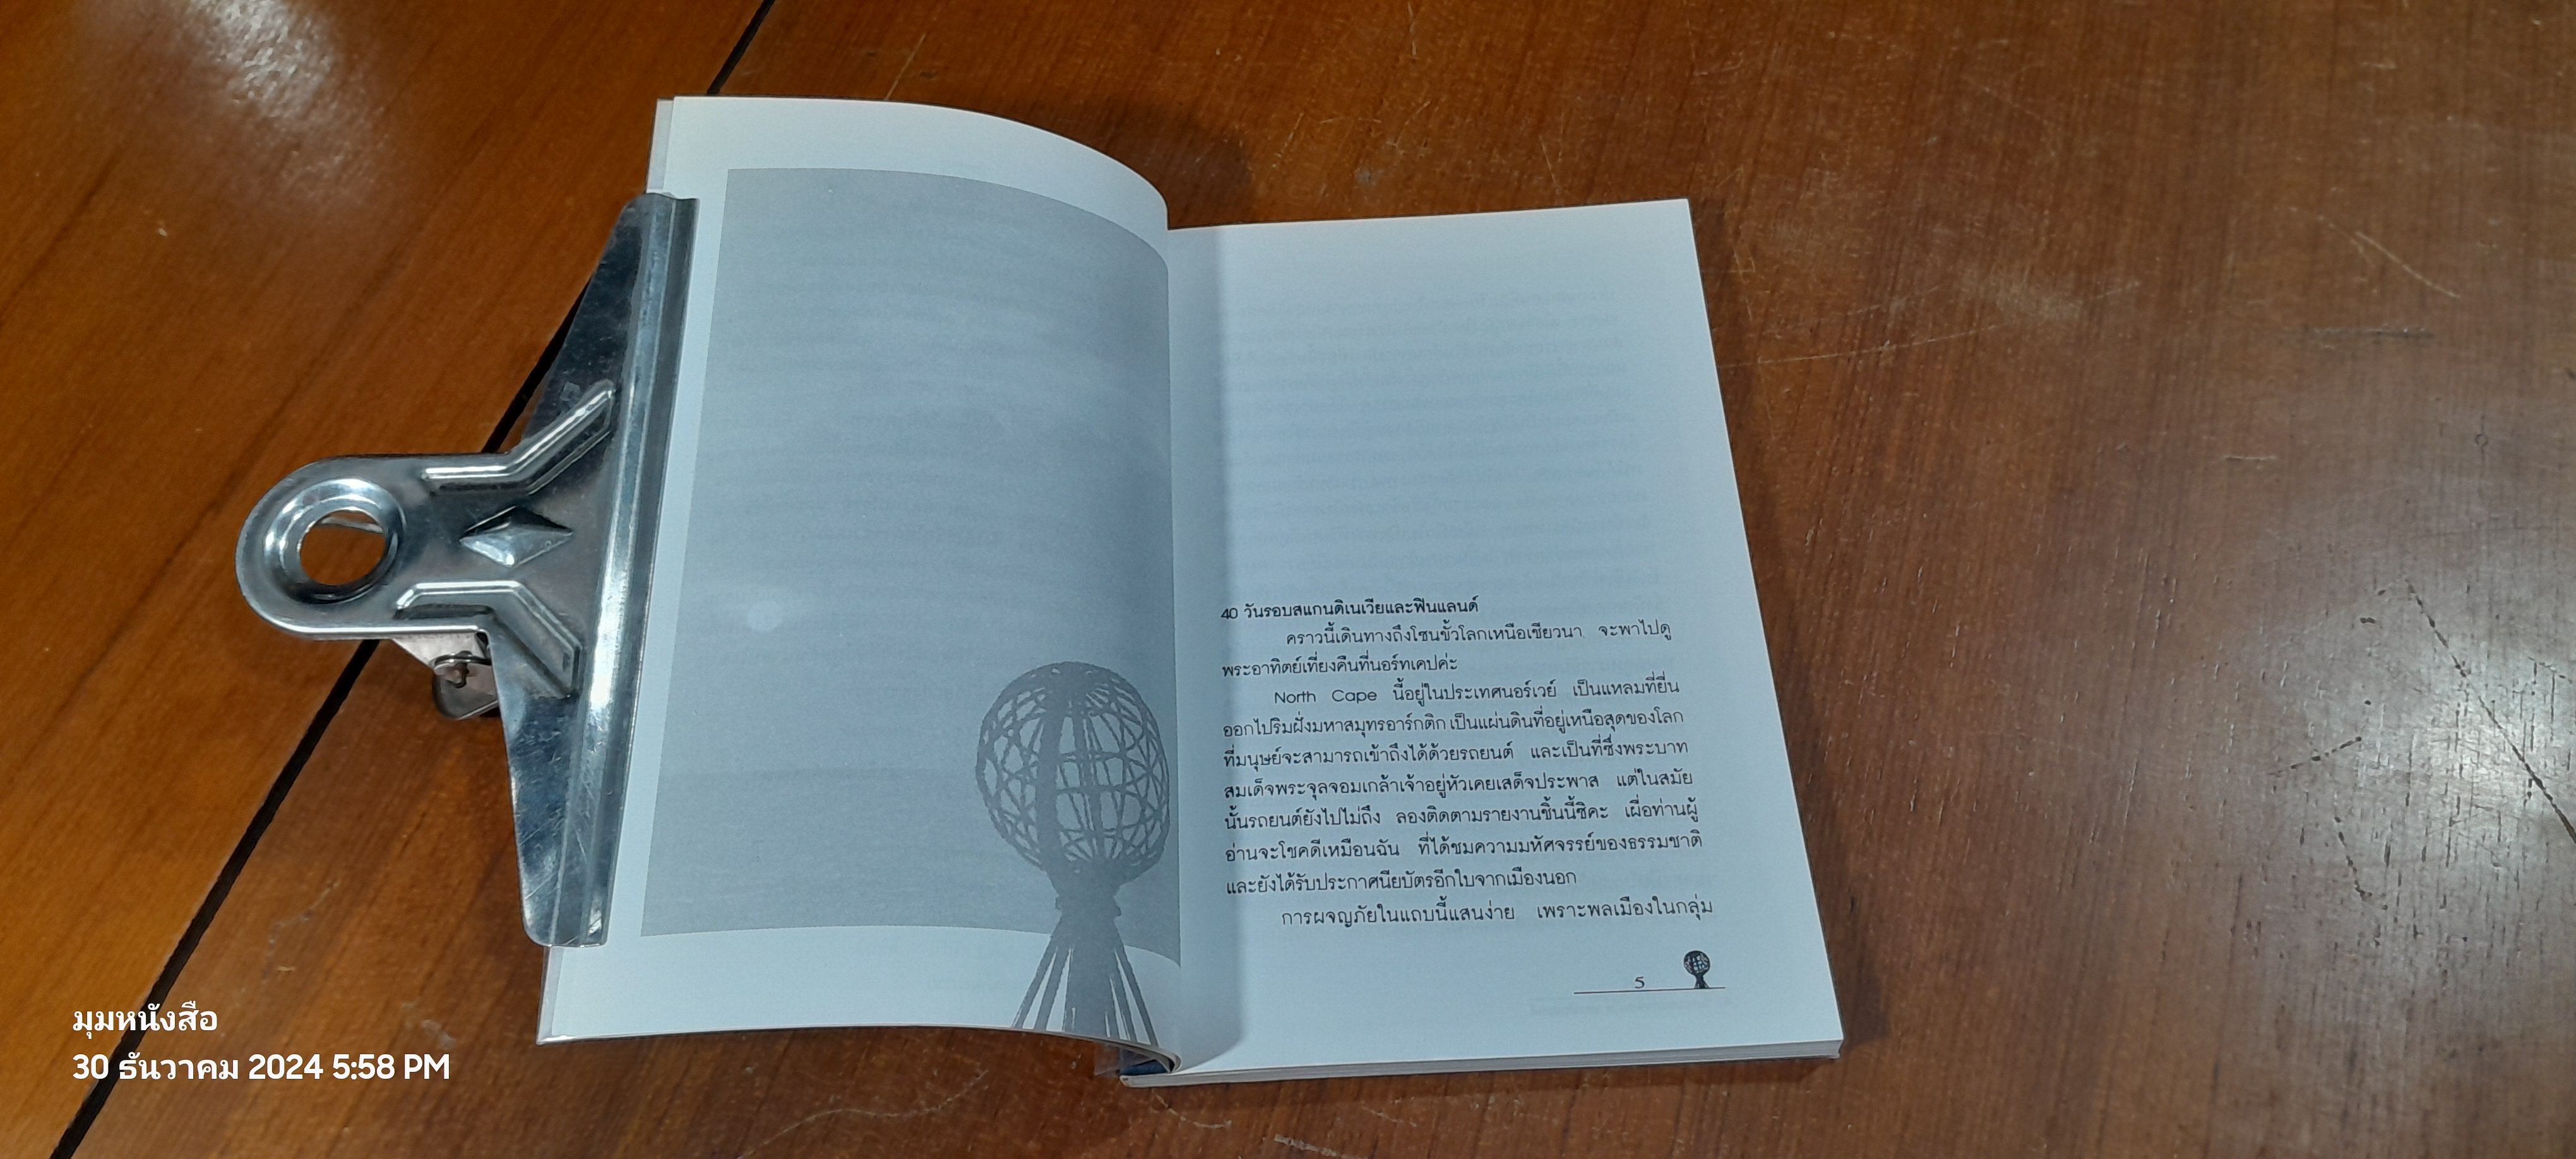 40 วันรอบสแกนดิเนเวียและฟินแลนด์
คราวนี้เดินทางถึงโซนขั้วโลกเหนือเชียวนา จะพาไปดู
พระอาทิตย์เที่ยงคืนที่นอร์ทเคปค่ะ
North Cape นี้อยู่ในประเทศนอร์เวย์ เป็นแหลมที่ยื่น
ออกไปริมฝั่งมหาสมุทรอาร์กติก เป็นแผ่นดินที่อยู่เหนือสุดของโลก
ที่มนุษย์จะสามารถเข้าถึงได้ด้วยรถยนต์ และเป็นที่ซึ่งพระบาท
สมเด็จพระจุลจอมเกล้าเจ้าอยู่หัวเคยเสด็จประพาส แต่ในสมัย
นั้นรถยนต์ยังไปไม่ถึง ลองติดตามรายงานชิ้นนี้ซิคะ เผื่อท่านผู้
อ่านจะโชคดีเหมือนฉัน ที่ได้ชมความมหัศจรรย์ของธรรมชาติ
และยังได้รับประกาศนียบัตรอีกใบจากเมืองนอก
การผจญภัยในแถบนี้แสนง่าย เพราะพลเมืองในกลุ่ม
5
มุมหนังสือ
30 ธันวาคม 2024 5:58 PM